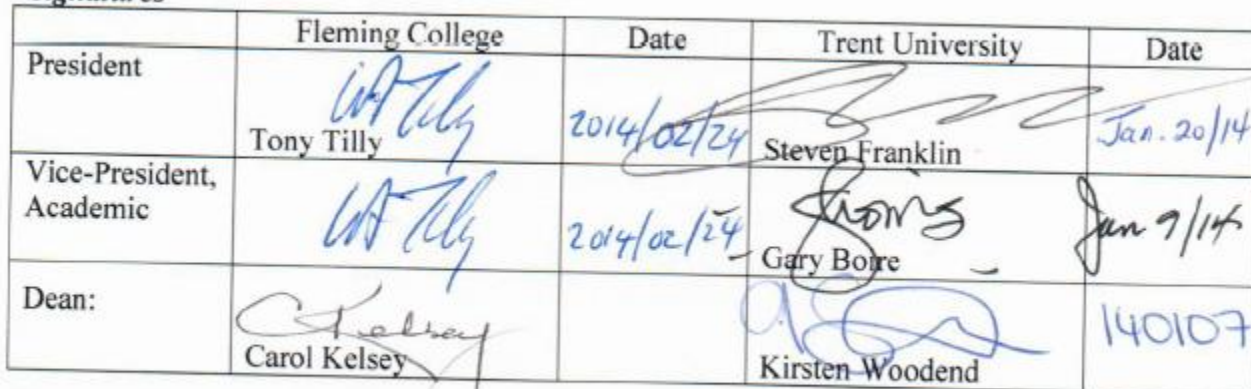 Fleming College Date Trent University Date
President
Tony Tilly 2014/02/24 Steven Franklin Jan. 20/14
Vice-President,
Academic
2014/02/24 Gary Boire Jan 9/14
Dean:
CKelsey
Carol Kelsey Kirsten Woodend 140107